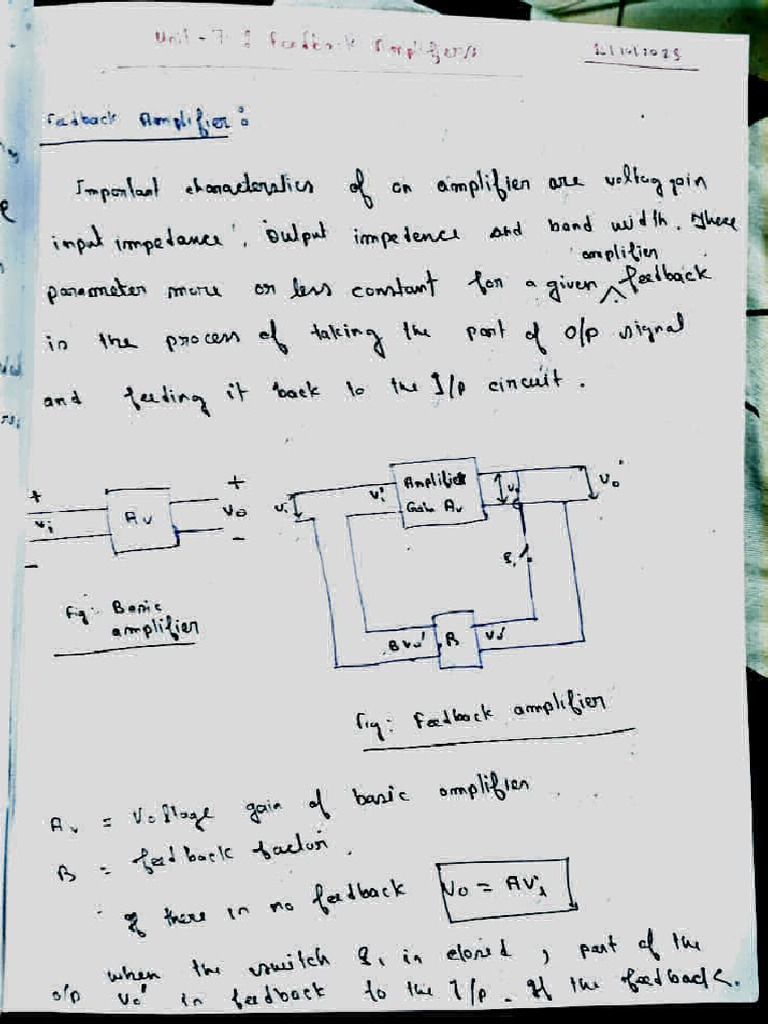 Unit - 7 : Feedback Amplifiers
Feedback Amplifier :
Important characteristics of an amplifier are voltag gain
input impedance, output impedence and band width. These
amplifier
parameter more or less constant for a given feedback
is the process of taking the part of o/p signal
and feeding it back to the I/p circuit.
+ + Vi Amplifier Vo'
Vi Av Vo Vi' Gain Av Vo'
- - S1
Fig: Basic
amplifier
BVo' B Vo'
Fig: Feedback amplifier
Av = Voltage gain of basic amplifier
B = feedback factor.
If there is no feedback Vo = AVi
when the switch S1 is closed, part of the
o/p Vo' is feedback to the I/p. If the feedback.